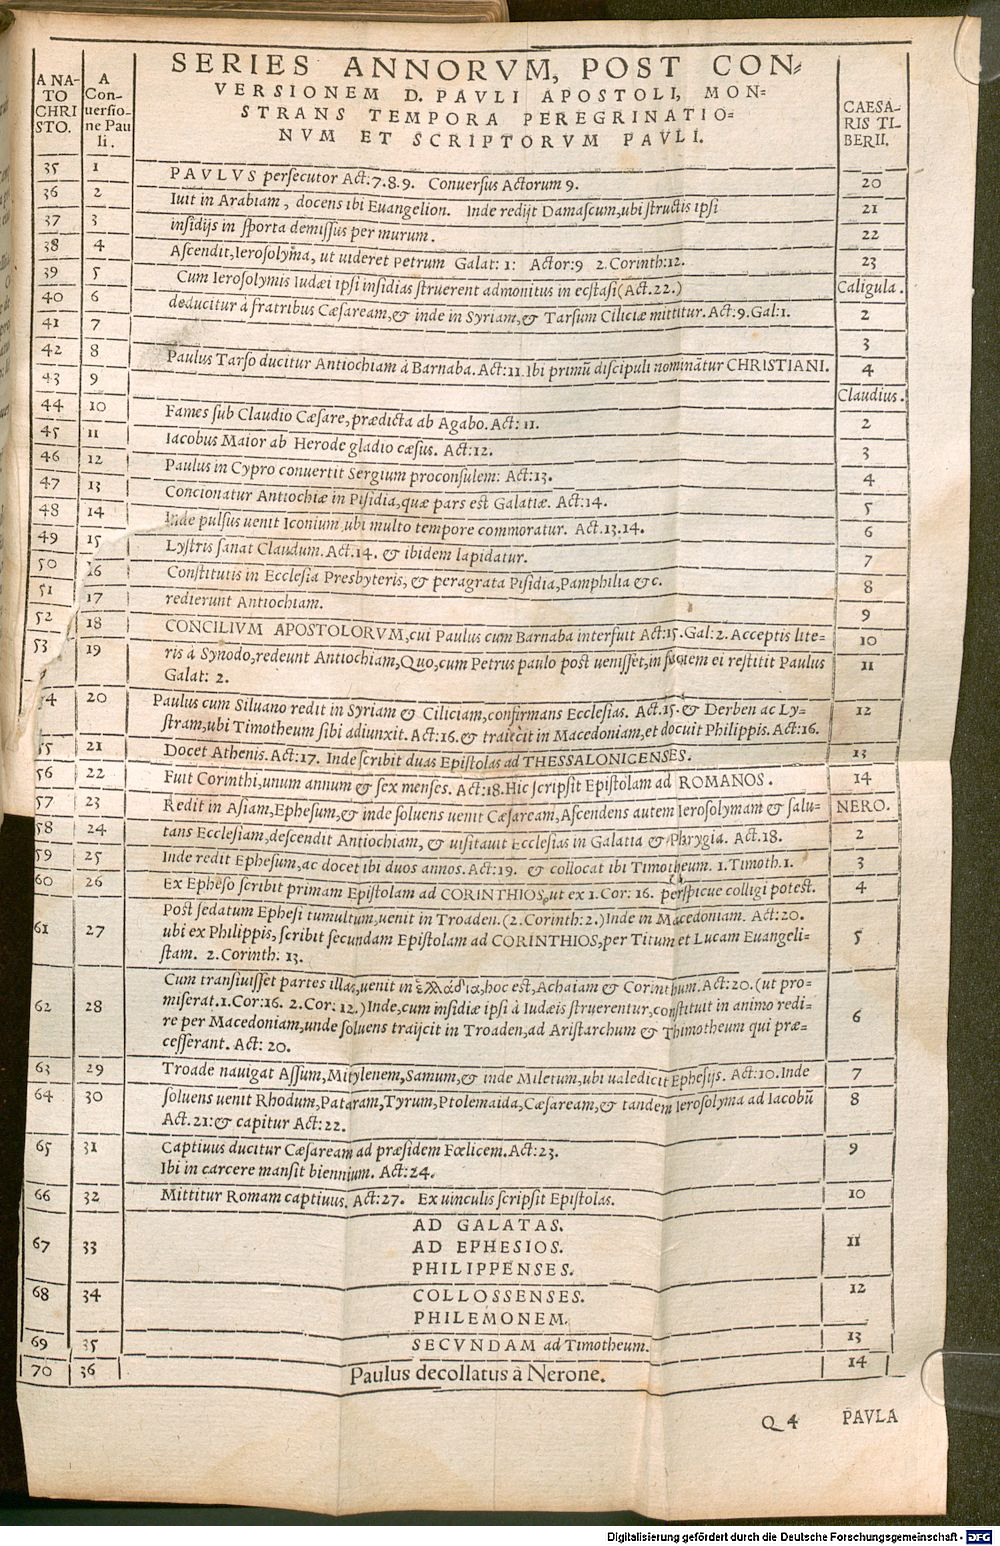 SERIES ANNORVM, POST CON=
VERSIONEM D. PAVLI APOSTOLI, MON=
STRANS TEMPORA PEREGRINATIO=
NVM ET SCRIPTORVM PAVLI.
A NA-
TO
CHRI
STO.
A
Con-
uersio-
ne Pau
li.
CAESA-
RIS TI-
BERII.
35 1 PAVLVS persecutor Act:7.8.9. Conuersus Actorum 9. 20
36 2 Iuit in Arabiam, docens ibi Euangelion. Inde redijt Damascum,ubi structis ipsi 21
37 3 insidijs in sporta demissus per murum. 22
38 4 Ascendit,Ierosolyma, ut uideret Petrum Galat: 1: Actor:9 2.Corinth:12. 23
39 5 Cum Ierosolymis Iudæi ipsi insidias struerent admonitus in ecstasi(Act.22.) Caligula.
40 6 deducitur à fratribus Cæsaream,& inde in Syriam,& Tarsum Ciliciæ mittitur. Act:9.Gal:1. 2
41 7 3
42 8 Paulus Tarso ducitur Antiochiam à Barnaba. Act:11 Ibi primũ discipuli nominãtur CHRISTIANI. 4
43 9 Claudius.
44 10 Fames sub Claudio Cæsare,prædicta ab Agabo. Act: 11. 2
45 11 Iacobus Maior ab Herode gladio cæsus. Act:12. 3
46 12 Paulus in Cypro conuertit Sergium proconsulem: Act:13. 4
47 13 Concionatur Antiochiæ in Pisidia,quæ pars est Galatiæ. Act:14. 5
48 14 Inde pulsus uenit Iconium,ubi multo tempore commoratur. Act.13.14. 6
49 15 Lystris sanat Claudum. Act.14. & ibidem lapidatur. 7
50 16 Constitutis in Ecclesia Presbyteris, & peragrata Pisidia,Pamphilia & c. 8
51 17 redierunt Antiochiam. 9
52 18 CONCILIVM APOSTOLORVM,cui Paulus cum Barnaba interfuit Act:15.Gal:2. Acceptis lite= 10
53 19 ris à Synodo,redeunt Antiochiam,Quo,cum Petrus paulo post uenisset,in faciem ei restitit Paulus 11
Galat: 2.
54 20 Paulus cum Siluano redit in Syriam & Ciliciam,confirmans Ecclesias. Act.15.& Derben ac Ly= 12
stram,ubi Timotheum sibi adiunxit. Act:16.& traiecit in Macedoniam,et docuit Philippis. Act:16.
55 21 Docet Athenis. Act:17. Inde scribit duas Epistolas ad THESSALONICENSES. 13
56 22 Fuit Corinthi,unum annum & sex menses. Act:18.Hic scripsit Epistolam ad ROMANOS. 14
57 23 Redit in Asiam,Ephesum,& inde soluens uenit Cæsaream,Ascendens autem Ierosolymam & salu= NERO.
58 24 tans Ecclesiam,descendit Antiochiam, & uisitauit Ecclesias in Galatia & Phrygia. Act.18. 2
59 25 Inde redit Ephesum,ac docet ibi duos annos. Act:19. & collocat ibi Timotheum. 1.Timoth.1. 3
60 26 Ex Epheso scribit primam Epistolam ad CORINTHIOS,ut ex 1.Cor: 16. perspicue colligi potest. 4
Post sedatum Ephesi tumultum,uenit in Troaden.(2.Corinth:2.)Inde in Macedoniam. Act:20.
61 27 ubi ex Philippis,scribit secundam Epistolam ad CORINTHIOS,per Titum et Lucam Euangeli= 5
stam. 2.Corinth: 13.
Cum transiuisset partes illas,uenit in ἑλλάδα,hoc est,Achaiam & Corinthum. Act:20.(ut pro=
62 28 miserat.1.Cor:16. 2.Cor: 12.)Inde,cum insidiæ ipsi à Iudæis struerentur,constituit in animo redi= 6
re per Macedoniam,unde soluens traijcit in Troaden,ad Aristarchum & Thimotheum qui præ=
cesserant. Act: 20.
63 29 Troade nauigat Assum,Mitylenem,Samum,& inde Miletum,ubi ualedicit Ephesijs. Act:10.Inde 7
64 30 soluens uenit Rhodum,Pataram,Tyrum,Ptolemaida,Cæsaream,& tandem Ierosolyma ad Iacobũ 8
Act.21:& capitur Act:22.
65 31 Captiuus ducitur Cæsaream ad præsidem Fœlicem.Act:23. 9
Ibi in carcere mansit biennium. Act:24.
66 32 Mittitur Romam captiuus. Act:27. Ex uinculis scripsit Epistolas. 10
AD GALATAS.
67 33 AD EPHESIOS. 11
PHILIPPENSES.
68 34 COLLOSSENSES. 12
PHILEMONEM.
69 35 SECVNDAM ad Timotheum. 13
70 36 Paulus decollatus à Nerone. 14
Q 4 PAVLA
Digitalisierung gefördert durch die Deutsche Forschungsgemeinschaft - DFG